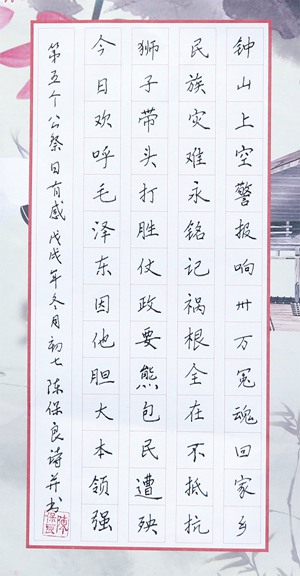 钟山上空警报响卅万冤魂回家乡
民族灾难永铭记祸根全在不抵抗
狮子带头打胜仗政要熊包民遭殃
今日欢呼毛泽东因他胆大本领强
第五个公祭日有感戊戌年冬月初七陈保良诗并书
陈保良